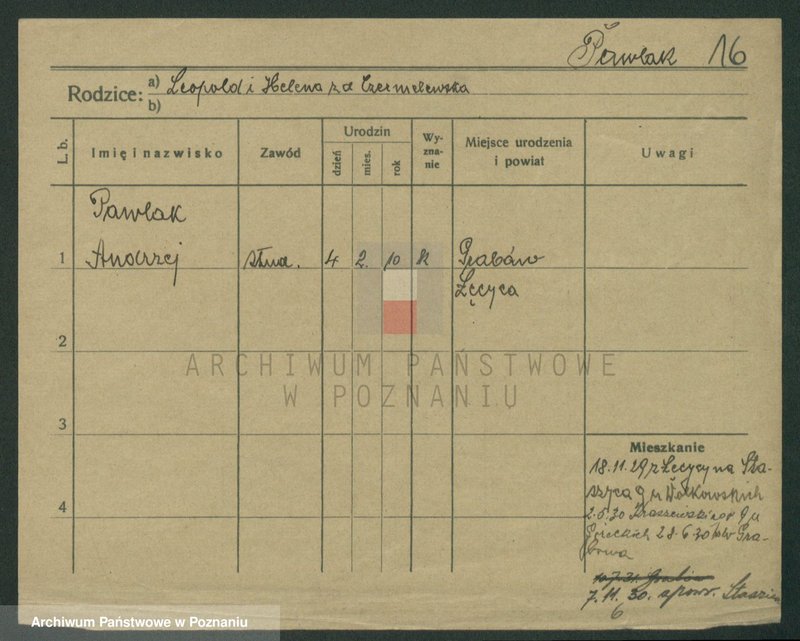 Pawlak 16
Rodzice: a) Leopold i Helena z d Czermelewska
b)
L. b.
Imię i nazwisko
Zawód
Urodzin
dzień
mies.
rok
Wy-
zna-
nie
Miejsce urodzenia
i powiat
Uwagi
Pawlak
1 Andrzej stud. 4 2. 10 k Grabów
Łęczyca
2
3
4
Mieszkanie
18.11.29 z Łęczycy na Sta-
szyca 9 u Wołkowskich
2.5.30 Kraszewskiego 9 u
Góreckich 28.6.30 do Gra-
bowa
7.11.30. spowr. Staszica
6
ARCHIWUM PAŃSTWOWE
W POZNANIU
Archiwum Państwowe w Poznaniu